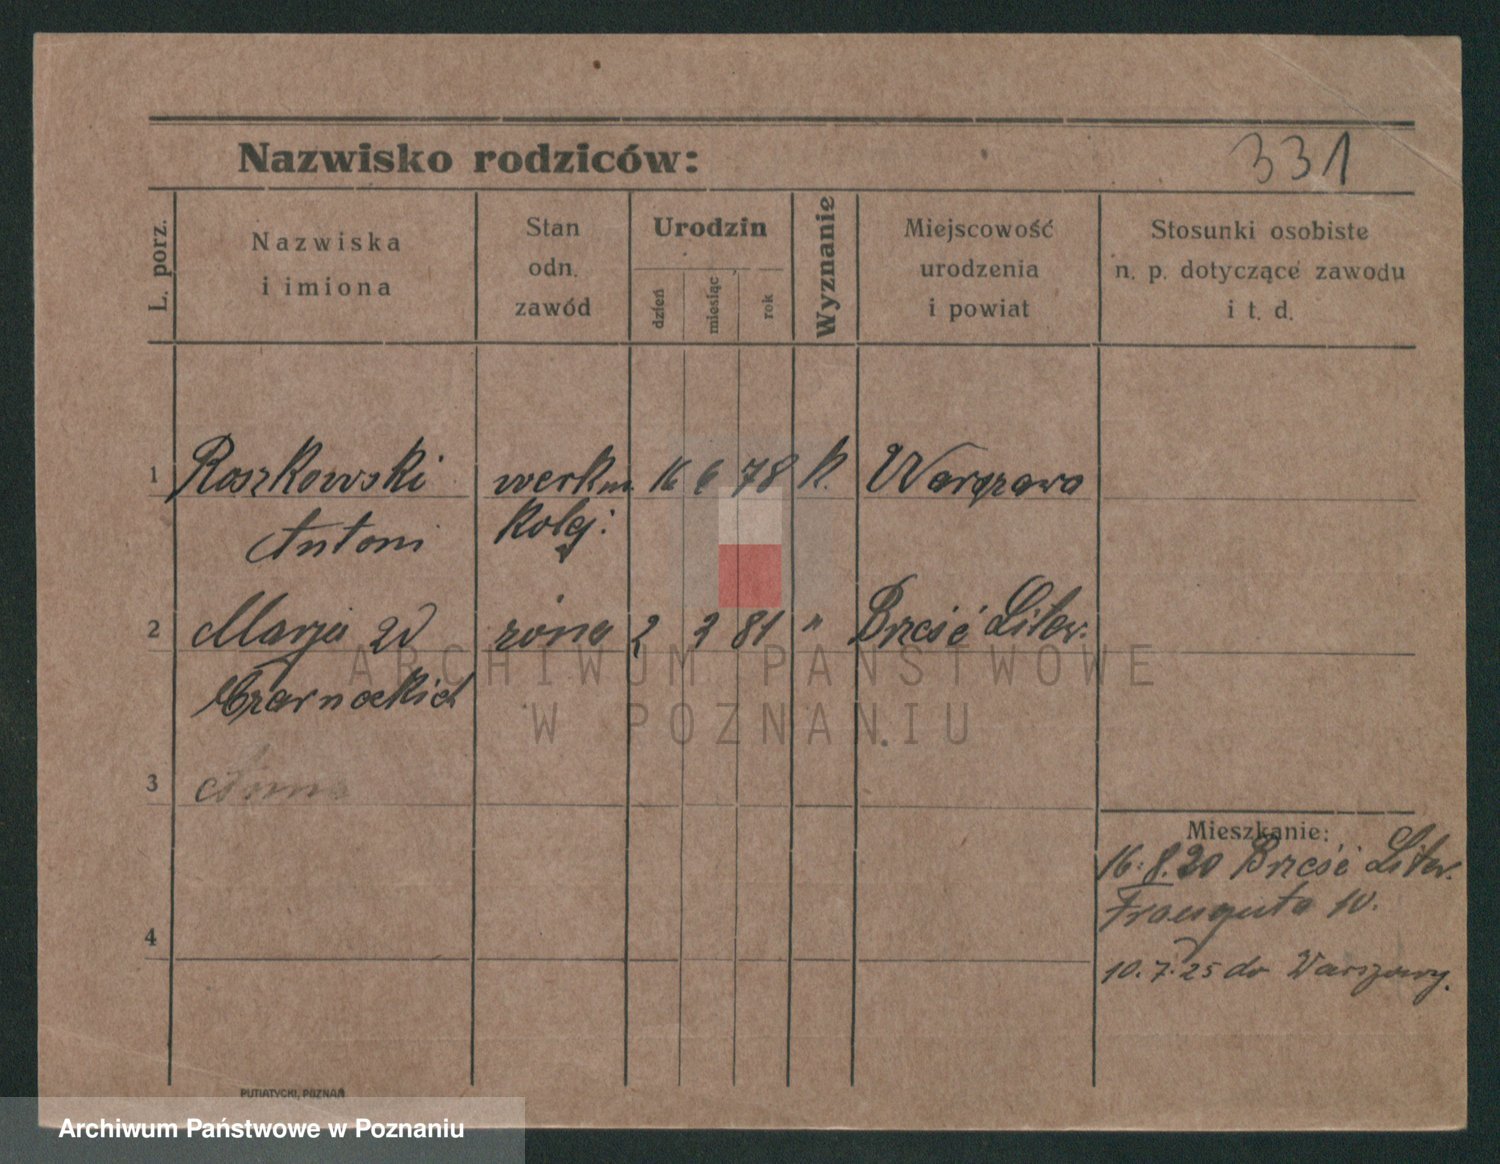 Nazwisko rodziców:
331
L. porz.
Nazwiska
i imiona
Stan
odn.
zawód
Urodzin
dzień
miesiąc
rok
Wyznanie
Miejscowość
urodzenia
i powiat
Stosunki osobiste
n. p. dotyczące zawodu
i t. d.
1 Roszkowski werkm. 16 6 78 k. Warszawa
Antoni kolej:
2 Marja zd żona 2 3 81 " Brześć Litew.
Czarnockich
3 Anna
4
Mieszkanie:
16.8.20 Brześć Litew.
10.
10.7.25 do Warszawy.
PUTIATYCKI, POZNAŃ
ARCHIWUM PAŃSTWOWE
W POZNANIU
Archiwum Państwowe w Poznaniu